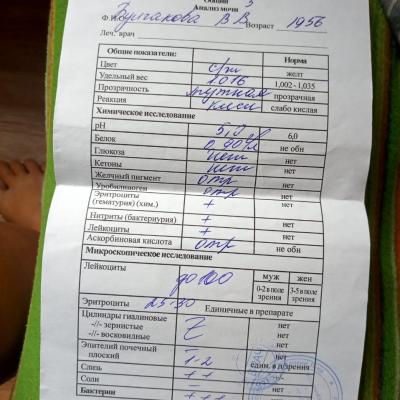 Общий 3
Анализ мочи
Ф.И.О. Булгакова В В Возраст 1956
Леч. врач
Общие показатели: Норма
Цвет с/ж желт
Удельный вес 1016 1,002 - 1,035
Прозрачность мутная прозрачная
Реакция кисл слабо кислая
Химическое исследование
pH 5,0 6,0
Белок не обн
Глюкоза нет нет
Кетоны нет нет
Желчный пигмент отр нет
Уробилиноген отр нет
Эритроциты
(гематурия) (хим.) + нет
Нитриты (бактериурия) + нет
Лейкоциты + нет
Аскорбиновая кислота отр не обн
Микроскопическое исследование
Лейкоциты до 100 муж жен
0-2 в поле зрения 3-5 в поле зрения
Эритроциты 25-30 Единичные в препарате
Цилиндры гиалиновые нет
-//- зернистые нет
-//- восковидные нет
Эпителий почечный нет
плоский 1-2 един. в п/зрения
Слизь
Соли
Бактерии